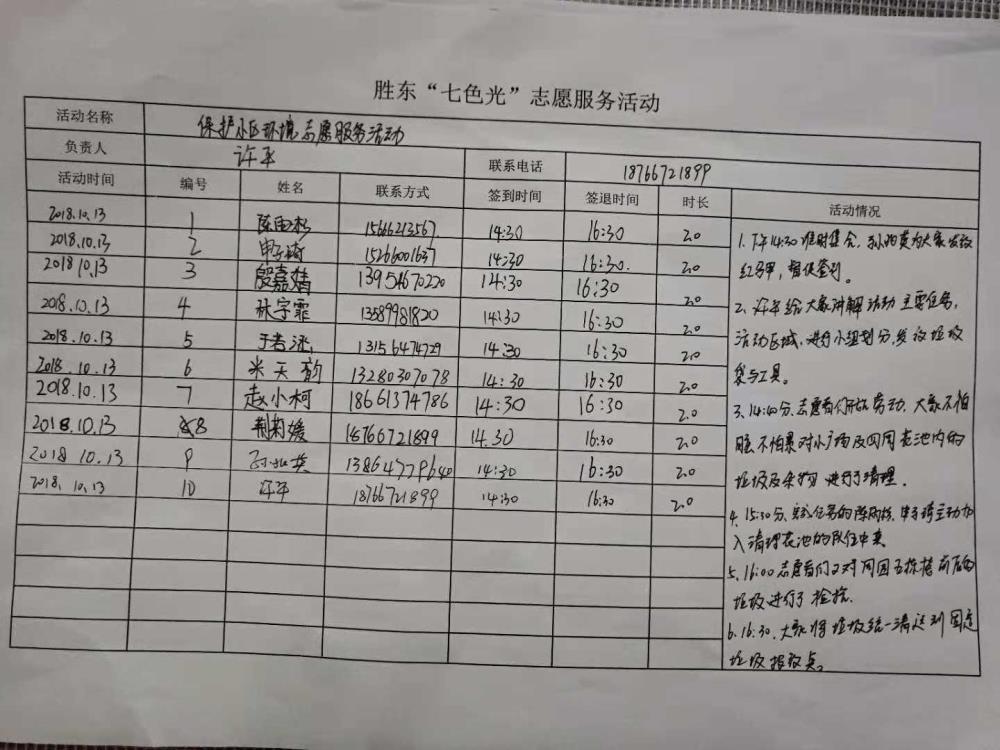 胜东“七色光”志愿服务活动
活动名称 保护小区环境志愿服务活动
负责人 许平 联系电话 18766721899
活动时间 编号 姓名 联系方式 签到时间 签退时间 时长 活动情况
2018.10.13 1 陈雨杉 15646213567 14:30 16:30 2.0
2018.10.13 2 申子琦 15266001637 14:30 16:30. 2.0
2018 10.13 3 殷嘉婧 13954670220 14:30 16:30 2.0
2018.10.13 4 林宇霏 13589981820 14:30 16:30 2.0
2018.10.13 5 13156474729 14:30 16:30 2.0
2018.10.13 6 米天韵 13280307078 14:30 16:30 2.0
2018.10.13 7 赵小柯 18661374786 14:30 16:30 2.0
2018.10.13 8 荆莉媛 18766721899 14.30 16:30 2.0
2018 10.13 9 14:30 16:30 2.0
2018.10.13 10 许平 18766721899 14:30 16:30 2.0
1.下午14:30准时集合,为大家发放
红马甲,督促签到。
2、许平给大家讲解活动主要任务,
活动区域,进行小组划分,发放垃圾
袋与工具。
3、14:40分、志愿者们开始劳动,大家不怕
脏不怕累对小广场及四周花池内的
垃圾及杂物进行了清理.
4、15:30分、任务的陈雨杉、申子琦主动加
入清理花池的队伍中来
5、16:00志愿者们又对五栋楼前后的
垃圾进行了捡拾.
6.16:30.大家将垃圾统一清运到固定
垃圾投放点。